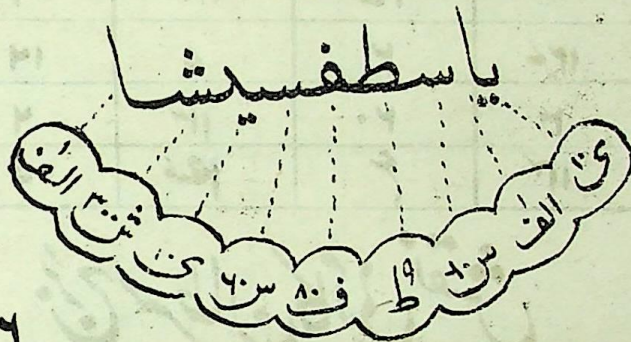 ياسطفسيشا
ى١٠ الف س٦٠ ط٩ ف٨٠ س٦٠ ى١٠ ش٣٠٠ الف